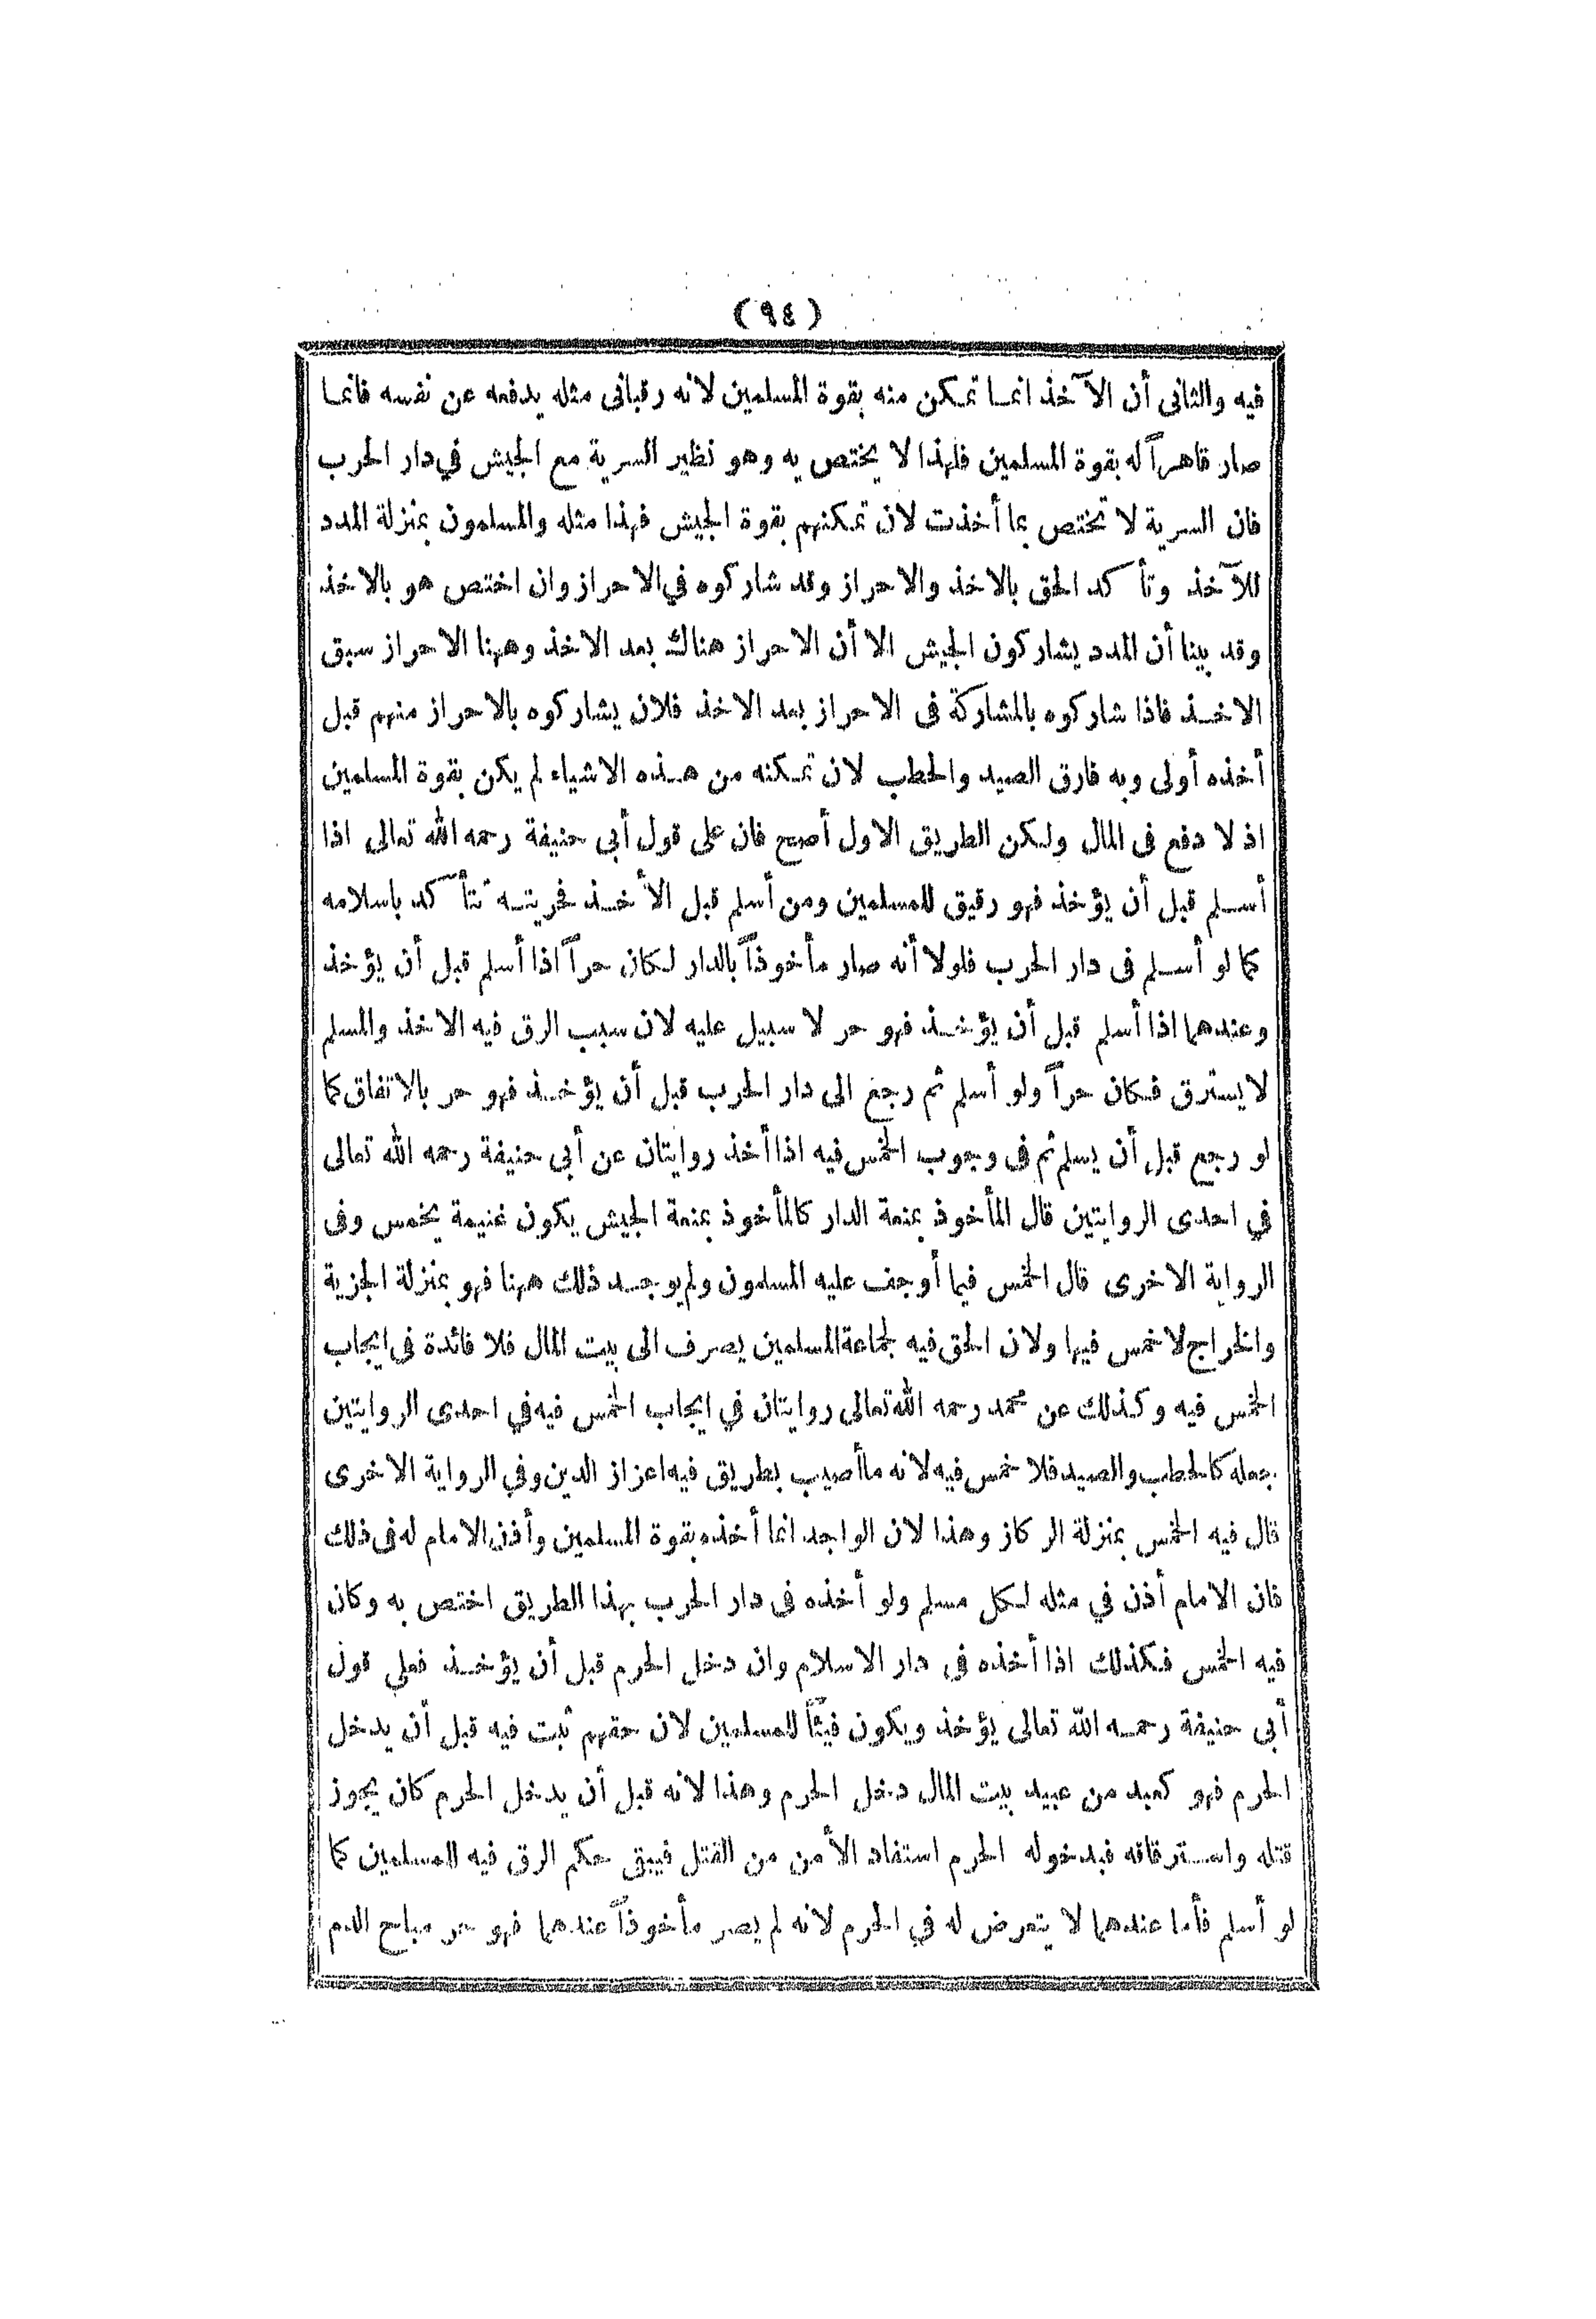 (٩٤)
فيه والثاني أن الآخذ انما تمكن منه بقوة المسلمين لانه رقباني مثله يدفعه عن نفسه فانما
صار قاهراً له بقوة المسلمين فلهذا لا يختص به وهو نظير السرية مع الجيش في دار الحرب
فان السرية لا تختص بما أخذت لان تمكنهم بقوة الجيش فهذا مثله والمسلمون بمنزلة المدد
للآخذ وتأكد الحق بالاخذ والاحراز وقد شاركوه في الاحراز وان اختص هو بالاخذ
وقد بينا أن المدد يشاركون الجيش الا أن الاحراز هناك بعد الاخذ وههنا الاحراز سبق
الاخذ فاذا شاركوه بالمشاركة فى الاحراز بعد الاخذ فلان يشاركوه بالاحراز منهم قبل
أخذه أولى وبه فارق الصيد والحطب لان تمكنه من هذه الاشياء لم يكن بقوة المسلمين
اذ لا دفع فى المال ولكن الطريق الاول أصح فان على قول أبى حنيفة رحمه الله تعالى اذا
أسلم قبل أن يؤخذ فهو رقيق للمسلمين ومن أسلم قبل الأخذ فحريته تتأكد باسلامه
كما لو أسلم فى دار الحرب فلولا أنه صار مأخوذاً بالدار لكان حراً اذا أسلم قبل أن يؤخذ
وعندهما اذا أسلم قبل أن يؤخذ فهو حر لا سبيل عليه لان سبب الرق فيه الاخذ والمسلم
لا يسترق فكان حراً ولو أسلم ثم رجع الى دار الحرب قبل أن يؤخذ فهو حر بالاتفاق كما
لو رجع قبل أن يسلم ثم فى وجوب الخمس فيه اذا أخذ روايتان عن أبي حنيفة رحمه الله تعالى
في احدى الروايتين قال المأخوذ بمنعة الدار كالمأخوذ بمنعة الجيش يكون غنيمة يخمس وفى
الرواية الاخرى قال الخمس فيما أوجف عليه المسلمون ولم يوجد ذلك ههنا فهو بمنزلة الجزية
والخراج لا خمس فيها ولان الحق فيه لجماعة المسلمين يصرف الى بيت المال فلا فائدة فى ايجاب
الخمس فيه وكذلك عن محمد رحمه الله تعالى روايتان في ايجاب الخمس فيه في احدى الروايتين
جعله كالحطب والصيد فلا خمس فيه لانه ما أصيب بطريق فيه اعزاز الدين وفي الرواية الاخرى
قال فيه الخمس بمنزلة الركاز وهذا لان الواجد انما أخذه بقوة المسلمين وأذن الامام له فى ذلك
فان الامام أذن في مثله لكل مسلم ولو أخذه فى دار الحرب بهذا الطريق اختص به وكان
فيه الخمس فكذلك اذا أخذه في دار الاسلام وان دخل الحرم قبل أن يؤخذ فعلي قول
أبى حنيفة رحمه الله تعالى يؤخذ ويكون فيئاً للمسلمين لان حقهم ثبت فيه قبل أن يدخل
الحرم فهو كعبد من عبيد بيت المال دخل الحرم وهذا لانه قبل أن يدخل الحرم كان يجوز
قتله واسترقاقه فبدخوله الحرم استفاد الأمن من القتل فيبقى حكم الرق فيه للمسلمين كما
لو أسلم فأما عندهما لا يتعرض له في الحرم لانه لم يصر مأخوذاً عندهما فهو حر مباح الدم